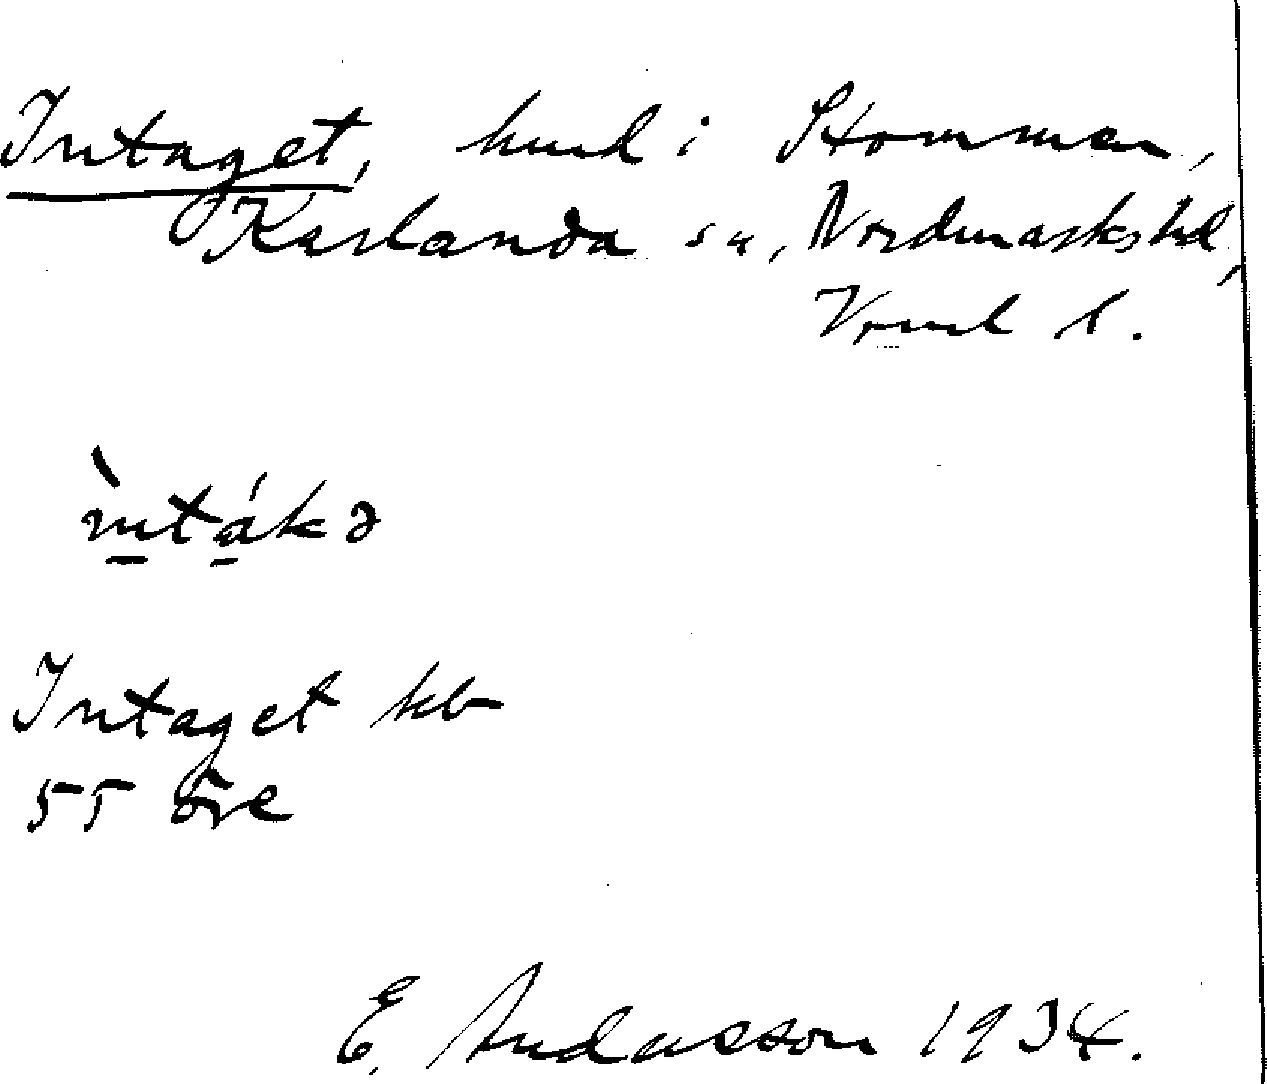 Intaget, hmd i Stommen,
Karlanda sn, Nordmarks hd,
Vrml l.
ı̀ntákə
Intaget kb
55 öre
E. Andersson 1934.